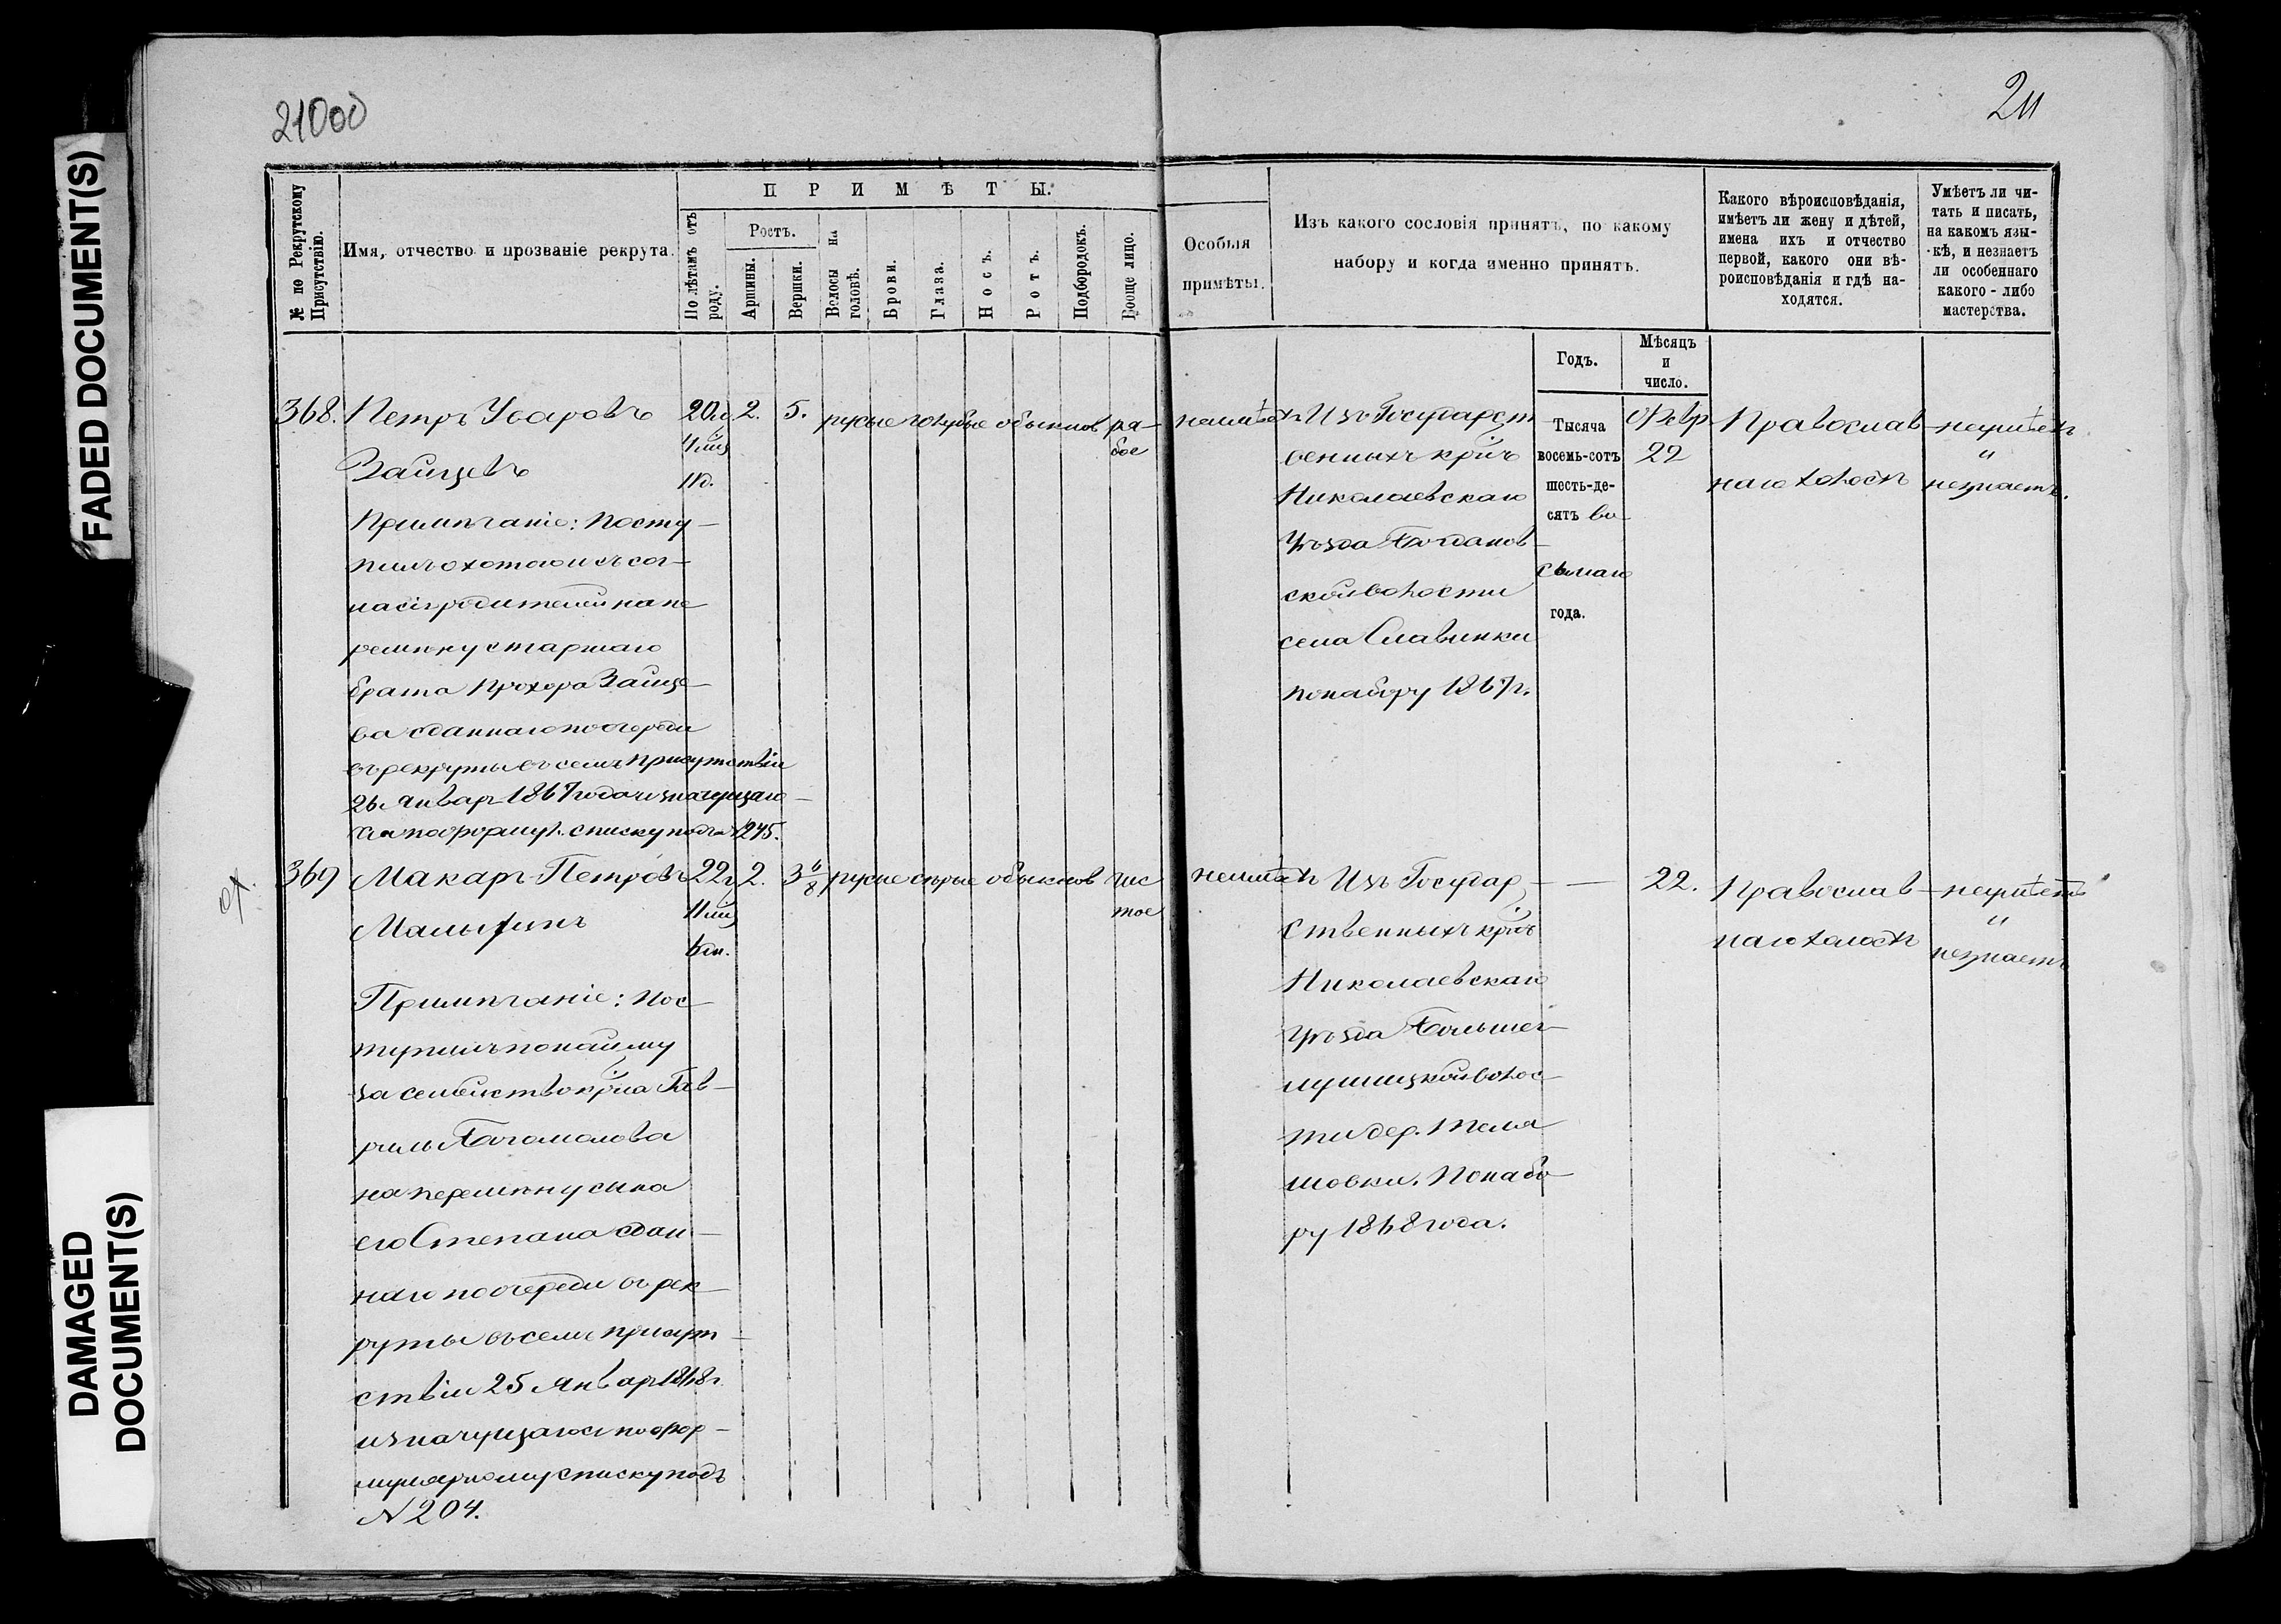 21000
211
FADED DOCUMENT(S)
DAMAGED
DOCUMENT(S)
№ по Рекрутскому Присутствію.
Имя, отчество и прозваніе рекрута.
ПРИМѢТЫ.
По лѣтамъ отъ роду.
Ростъ.
Аршины.
Вершки.
Волосы на головѣ.
Брови.
Глаза.
Носъ.
Ротъ.
Подбородокъ.
Вооще лицо.
Особыя
примѣты.
Изъ какого сословія принятъ, по какому
набору и когда именно принятъ.
Какого вѣроисповѣданія,
имѣетъ ли жену и дѣтей,
имена ихъ и отчество
первой, какого они вѣ-
роисповѣданія и гдѣ на-
ходятся.
Умѣетъ ли чи-
тать и писать,
на какомъ язы-
кѣ, и незнаетъ
ли особеннаго
какого-либо
мастерства.
Годъ.
Мѣсяцъ
и
число.
368.
Петръ Уваровъ
Зайцевъ
Примѣчаніе: Посту-
пилъ охотою и съ сог-
ласія родителей на пе
ремѣну старшаго
брата Прохора Зайце-
ва сданнаго по очереди
въ рекруты въ семъ присутствіи
26 Январ 1867 года и значущаго-
ся по формул. списку подъ № 245.
20л
2.
5.
русые голубые обыкнов
ря-
бое
неимѣетъ
Изъ Государст
венныхъ крнъ
Николаевскаго
Уѣзда Богданов-
ской волости
села Славинки
по набору 1867г.
Тысяча
восемь-сотъ
шесть-де-
сятъ во-
сьмаго
года.
Февр
22
Православ-
наго холостъ
неумѣетъ
"
незнаетъ.
369
Макаръ Петровъ
Примѣчаніе: Пос
тупилъ по найму
за семейство крна Гав-
рилы Богомолова
на перемѣну сына
его Степана сдан-
наго по очереди въ рек-
руты въ семъ присут-
ствіи 25 Январ 1868г.
и значущагося по фор-
мулярному списку подъ
N 204.
22г
2.
3 6/8
русые сѣрые обыкнов
чис
тое
неимѣетъ
Изъ Государ-
ственныхъ крнъ
Николаевскаго
Уѣзда Больше-
глушицкой волос-
ти дер. Теля
шовки. По набо-
ру 1868 года.
—
22.
Православ-
наго холостъ
неумѣетъ
"
незнаетъ